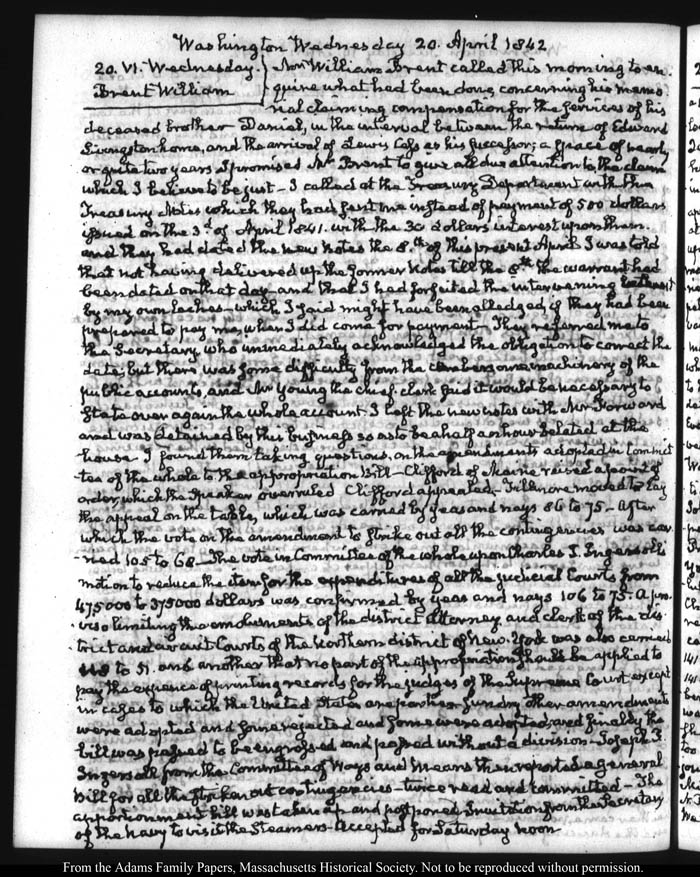 Washington Wednesday 20. April 1842
20. VI. Wednesday. } Mr William Brent called this morning to en-
Brent William quire what had been done concerning his memo-
rial claiming compensation for the services of his
deceased brother Daniel, in the interval between the return of Edward
Livingston home, and the arrival of Lewis Cass as his successor; a space of nearly
or quite two years I promised Mr Brent to give all due attention to the claim
which I believe to be just — I called at the Treasury Department with the
Treasury Notes which they had sent me instead of payment of 500 dollars
issued on the 3d of April 1841. with the 30 dollars interest upon them.
and they had dated the new notes the 8th of this present April I was told
that not having delivered up the former Notes till the 8th the warrant had
been dated on that day — and that I had forfeited the intervening interest
by my own laches — which I said might have been alledged, if they had been
prepared to pay me, when I did come for payment — They referred me to
the Secretary, who immediately acknowledged the obligation to correct the
date; but there was some difficulty from the cumbersome machinery of the
public accounts, and Mr Young the chief clerk said it would be necessary to
state over again the whole account. I left the new notes with Mr Forward
and was detained by this business so as to be half an hour belated at the
house. I found them taking questions, on the amendments adopted in Commit-
tee of the whole to the appropriation Bill — Clifford of Maine raised a point of
order, which the Speaker overruled Clifford appealed — Fillmore moved to lay
the appeal on the table, which was carried by yeas and nays 86 to 75 — After
which the vote on the amendment to strike out all the contingencies was car-
ried 105 to 68 — The vote in Committee of the whole upon Charles J. Ingersoll's
motion to reduce the item for the expenditures of all the judicial Courts from
475000 to 375000 dollars was confirmed by yeas and nays 106 to 75 — a pro-
viso limiting the emoluments of the district Attorney and clerk of the dis-
trict and circuit Courts of the Northern district of New-York was also carried
to 51. and another that no part of the appropriation shall be applied to
pay the expence of printing records for the judges of the Supreme Court except
in cases to which the United States are parties. Sundry other amendments
were adopted and some rejected and some were adopted, and finally the
bill was passed to be engrossed and passed without a division — Joseph R.
Ingersoll from the Committee of Ways and Means then reported a general
Bill for all the stricken out contingencies — twice read and committed — The
apportionment bill was taken up and postponed Invitation from the Secretary
of the Navy to visit the Steamers — Accepted for Saturday noon
From the Adams Family Papers, Massachusetts Historical Society. Not to be reproduced without permission.